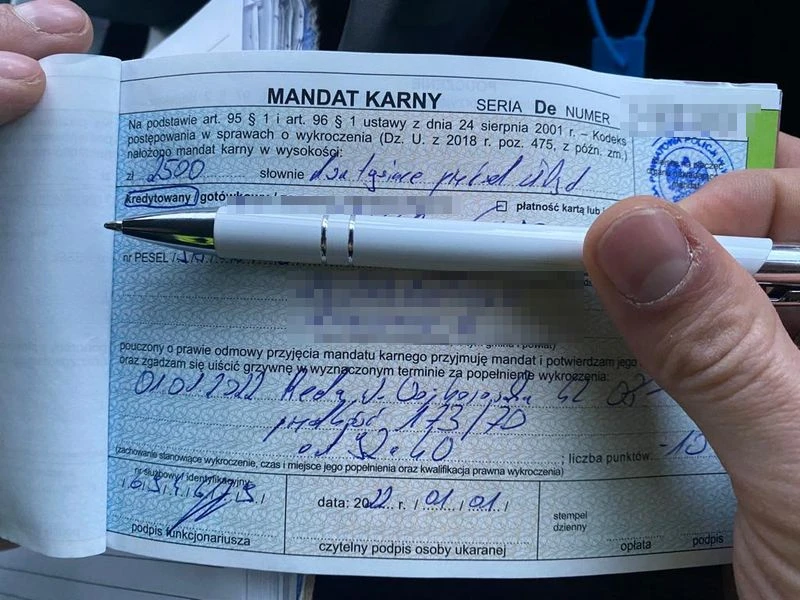 MANDAT KARNY SERIA De NUMER
Na podstawie art. 95 § 1 i art. 96 § 1 ustawy z dnia 24 sierpnia 2001 r. – Kodeks
postępowania w sprawach o wykroczenia (Dz. U. z 2018 r. poz. 475, z późn. zm.)
nałożono mandat karny w wysokości:
zł 2500 słownie dwa tysiące pięćset złotych
kredytowany / płatność kartą lub
nr PESEL /
pouczony o prawie odmowy przyjęcia mandatu karnego przyjmuję mandat i potwierdzam jego
oraz zgadzam się uiścić grzywnę w wyznaczonym terminie za popełnienie wykroczenia:
01.01.2022 Reda ul.
prędkość 173/70
; liczba punktów. -10
(zachowanie stanowiące wykroczenie, czas i miejsce jego popełnienia oraz kwalifikacja prawna wykroczenia)
nr służbowy / identyfikacyjny
data: 2022 r. / 01 / 01 /
stempel
dzienny
podpis funkcjonariusza
czytelny podpis osoby ukaranej
opłata podpis